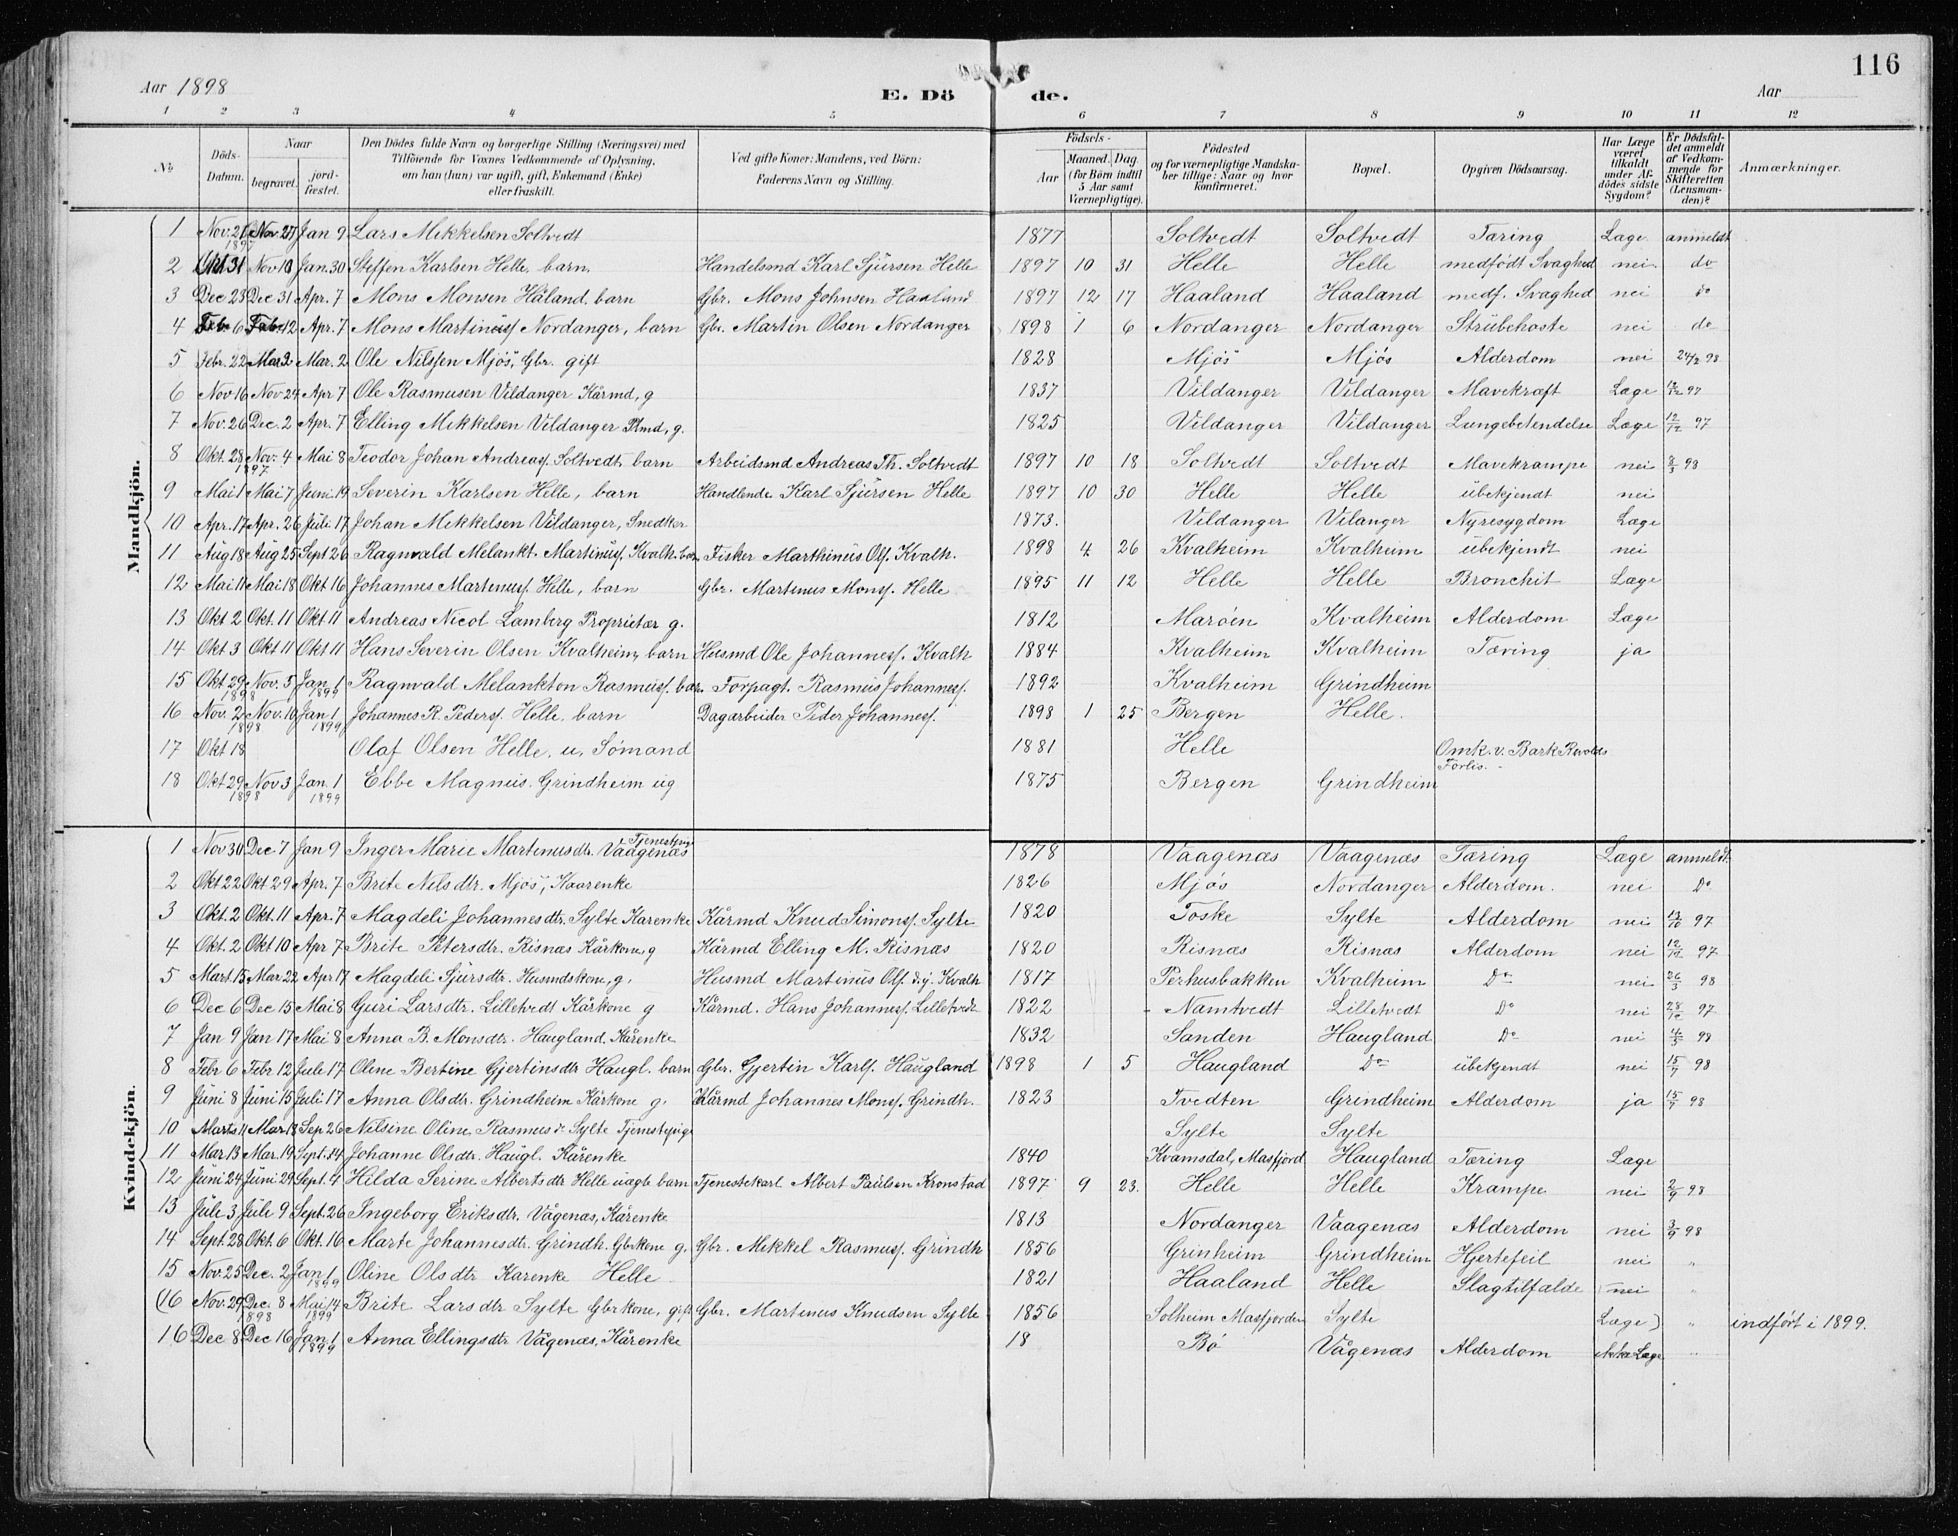 116
Aar 1898
E. Dö de.
Aar
1 2 3 4 5 6 7 8 9 10 11 12
No
Döds-Datum.
Naar
begravet.
jord-fæstet.
Den Dödes fulde Navn og borgerlige Stilling (Næringsvei) med
Tilföiende for Voxnes Vedkommende af Oplysning,
om han (hun) var ugift, gift, Enkemand (Enke)
eller fraskilt.
Ved gifte Koner: Mandens, ved Börn:
Faderens Navn og Stilling.
Födsels-
Aar
Maaned. Dag.
(for Börn indtil
5 Aar samt
Værnepligtige).
Födested
og for værnepligtige Mandska-
ber tillige: Naar og hvor
konfirmeret.
Bopæl.
Opgiven Dödsaarsag.
Har Læge
været
tilkaldt
under Af-
dödes sidste
Sygdom?
Er Dödsfal-
det anmeldt
af Vedkom-
mende for
Skifteretten
(Lensman-
den)?
Anmærkninger.
Mandkjön.
1 Nov. 21 1897 Nov 27 Jan 9 Lars Mikkelsen Soltvedt 1877 Soltvedt Soltvedt Tæring Læge anmeldt
2 Okt 31 Nov 10 Jan. 30 Steffen Karlsen Helle, barn. Handelsmd Karl Sjursen Helle 1897 10 31 Helle Helle medfødt Svaghed nei do
3 Dec 23 Dec 31 Apr. 7 Mons Monsen Håland, barn Gbr. Mons Johnsen Haaland 1897 12 17 Haaland Haaland medf. Svaghed nei do
4 Feb 6 Feb 12 Apr. 7 Mons Martinusf Nordanger, barn Gbr. Martin Olsen Nordanger 1898 1 6 Nordanger Nordanger Strubehoste nei do
5 Febr. 22 Mar 2 Mar. 2 Ole Nilssen Mjøs, Gbr. gift 1828 Mjøs Mjøs Alderdom nei 24/2 98
6 Nov 16 Nov 24 Apr 7 Ole Rasmusen Vildanger Kårmd, g 1837 Vildanger Vildanger Mavekræft Læge 12/12 97
7 Nov. 26 Dec. 2 Apr. 7 Elling Mikkelsen Vildanger Plmd, g. 1825 Vildanger Vildanger Lungebetendelse Læge 12/12 97
8 Okt. 28 1897 Nov. 4 Mai 8 Teodor Johan Andreasf. Soltvedt, barn Arbeidsmd Andreas Th. Soltvedt 1897 10 18 Soltvedt Soltvedt Mavekrampe nei 8/3 98
9 Mai 1 Mai 7 Juni 19 Severin Karlsen Helle, barn Handlende Karl Sjursen Helle 1897 10 30 Helle Helle ubekjendt nei
10 Apr. 17 Apr. 26 Juli 17 Johan Mikkelsen Vildanger, Snedker 1873. Vildanger Vilanger Nyresygdom Læge
11 Aug 18 Aug 25 Sept 26 Ragnvald Melankt. Martinusf. Kvalh. barn Fisker Marthinus Olf. Kvalh. 1898 4 26 Kvalheim Kvalheim ubekjendt nei
12 Mai 11 Mai 18 Okt 16 Johannes Martinusf. Helle, barn Gbr. Martinus Monsf. Helle 1895 11 12 Helle Helle Bronchit Læge
13 Okt 2 Okt. 11 Okt 11 Andreas Nicol Lamberg Proprietær g. 1812 Marøen Kvalheim Alderdom Læge
14 Okt. 3 Okt 11 Okt 11 Hans Severin Olsen Kvalheim, barn Husmd Ole Johannesf. Kvalh 1884 Kvalheim Kvalheim Tæring ja
15 Okt 29 1898 Nov. 5 Jan. 1 1899 Ragnvald Melankton Rasmusf. barn Forpagt. Rasmus Johannesf. 1892 Kvalheim Grindheim
16 Nov. 2 1898 Nov. 10 Jan 1 1899 Johannes R. Pedersf. Helle, barn Dagarbeider Peder Johannesf. 1898 1 25 Bergen Helle.
17 Okt 18 Olaf Olsen Helle, u. Sømand 1881 Helle Omk. v. Bark Revolds Forlis.
18 Okt 29 1898 Nov 3 Jan. 1 1899 Ebbe Magnus Grindheim ug 1875 Bergen Grindheim
Kvindekjön.
1 Nov 30 Dec. 7 Jan 9 Inger Marie Martinusdtr. Vaagenæs Tjenestpige 1878 Vaagenæs Vaagenæs Tæring Læge anmeldt
2 Okt 22 Okt. 29 Apr. 7 Brite Nilsdtr. Mjøs, Kaarenke 1826 Mjøs Nordanger Alderdom. nei Do
3 Okt. 2 Okt. 11 Apr. 7 Magdeli Johannesdtr. Sylte Karenke Kårmd Knud Simonsf. Sylte 1820 Toske Sylte Alderdom nei 12/10 97
4 Okt. 2 Okt 10 Apr 7 Brite Petersdtr. Risnæs Kårkone, g Kårmd Elling M. Risnæs 1820 Risnæs Risnæs Alderdom nei 12/12 97
5 Mart 15 Mar. 22 Apr 17 Magdeli Sjursdtr. Husmdskone, g. Husmd Martinus Olf. d.y. Kvalh 1817 Perhusbakken Kvalheim Do nei 26/3 98
6 Dec 6 Dec 15 Mai 8 Guri Larsdtr. Lilletvedt Kårkone g Kårmd. Hans Johannesf. Lilletvedt 1822 Namtvedt Lilletvedt Do nei 28/12 97
7 Jan 9 Jan 17 Mai 8 Anna B. Monsdtr. Haugland, Kårenke 1832 Sanden Haugland Do nei 98
8 Febr 6 Febr 12 Jule 17 Oline Bertine Gjertinsdtr Haugl. barn Gbr. Gjertin Karlf. Haugland 1898 1 5 Haugland Do ubekjendt nei 15/7 98
9 Juni 8 Juni 15 Juli 17 Anna Olsdtr. Grindheim Kårkone g. Kårmd Johannes Monsf. Grindh. 1823 Tvedten Grindheim Alderdom ja 15/7 98
10 Marts 11 Mar. 18 Sep 26 Nilsine Oline Rasmusd. Sylte Tjenstepige Sylte Sylte
11 Mar 13 Mar. 19 Sept. 14 Johanne Olsdtr. Haugl. Kårenke 1840 Kvamsdal, Masfjord Haugland Tæring Læge
12 Juni 24 Juni 29 Sept. 4 Hilda Serine Albertsdtr Helle uagte barn Tjenestekarl Albert Paulsen Kronstad 1897 9 23. Helle Helle Krampe nei 2/9 98
13 Jule 3 Jule 9 Sept. 26 Ingeborg Eriksdtr. Vågenæs, Kårenke 1813 Nordanger Vaagenæs Alderdom nei 3/9 98
14 Sept. 28 Okt. 6 Okt. 16 Marte Johannesdtr. Grindh. Gbrkone g. Gbr. Mikkel Rasmusf. Grindh 1856 Grinheim Grindheim Hjertefeil nei "
15 Nov. 25 Dec. 2 Jan 1 1899 Oline Olsdtr Karenke Helle 1821 Haaland Helle Slagtilfalde nei "
(16 Nov. 29 Dec. 8 1898 Mai 14 1899 Brite Larsdtr Sylte Gbrkone, gift Gbr. Martinus Knudsen Sylte 1856 Solheim Masfjorden Sylte Læge) " indført i 1899.
16 Dec 8 Dec 16 Jan. 1 1899 Anna Ellingsdtr Vågenæs, Kårenke 18 Bø Vågenæs Alderdom ikke Læge "